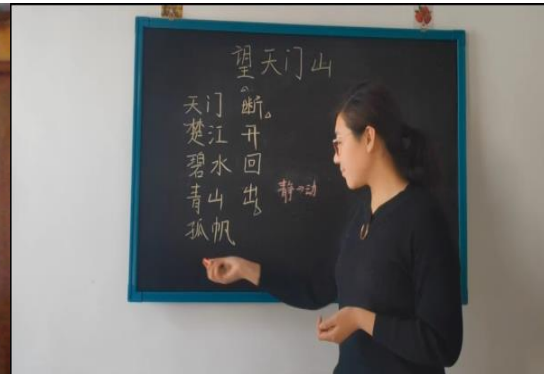 望天门山
天门 断。
楚江 开
碧水 回
青山 出。
静→动
孤帆